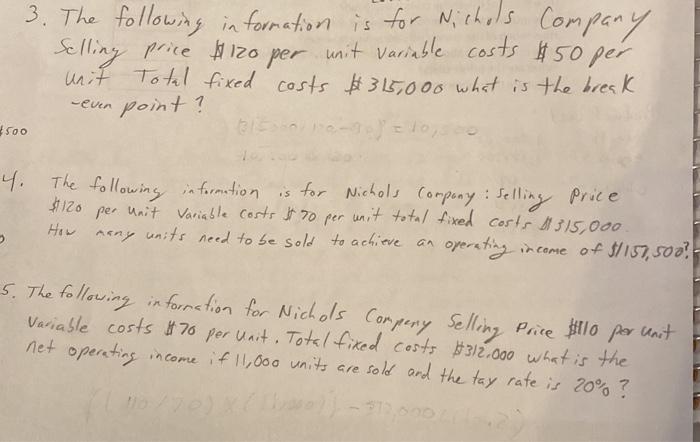 3. The following information is for Nichols Company
Selling price $120 per unit variable costs $50 per
unit Total fixed costs $315,000 what is the break
-even point?
$500
4. The following information is for Nichols Company: Selling Price
$120 per unit Variable costs $70 per unit total fixed costs $315,000.
How many units need to be sold to achieve an operating income of $157,500?
5. The following information for Nichols Company Selling Price $110 per unit
Variable costs $70 per unit. Total fixed costs $312,000 what is the
net operating income if 11,000 units are sold and the tax rate is 20%?